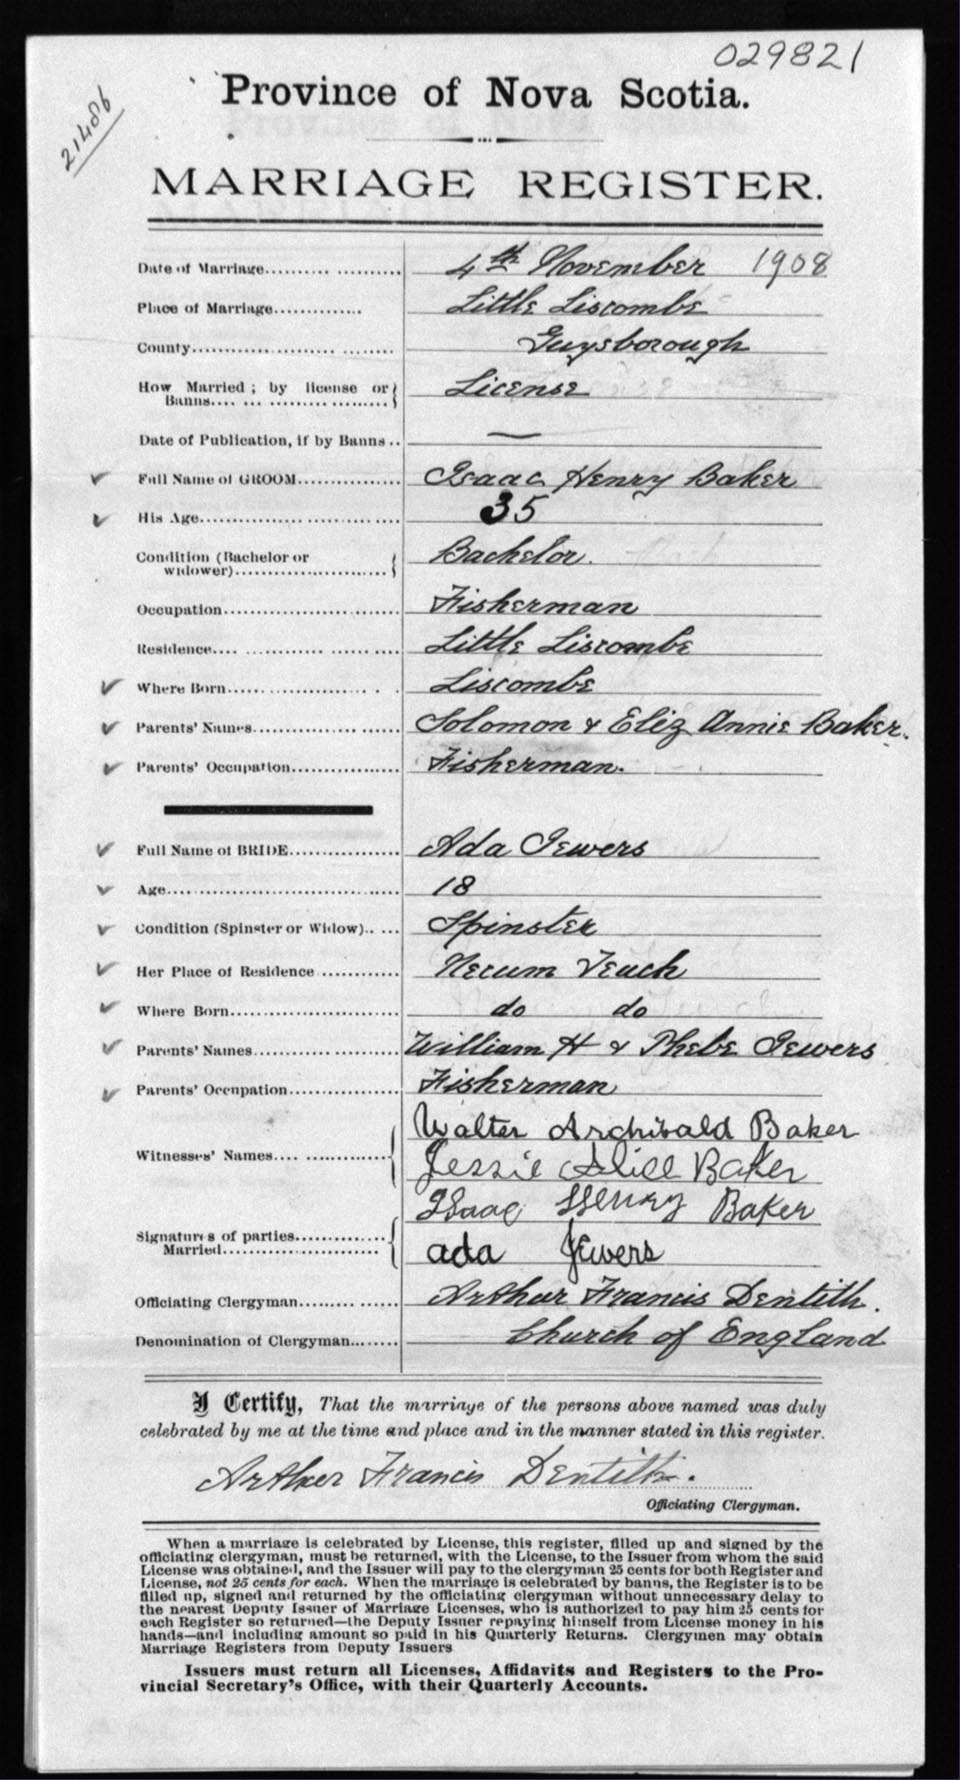 029821
21486
Province of Nova Scotia.
MARRIAGE REGISTER.
Date of Marriage.......... ........... 4th November 1908
Place of Marriage.............. Little Liscombe
County........................ ......... Guysborough
How Married ; by license or License
Banns.... ... ...................
Date of Publication, if by Banns .. —
Full Name of GROOM................ Isaac Henry Baker
His Age............................... 35
Condition (Bachelor or Bachelor.
widower)........................
Occupation........................... Fisherman
Residence.... ............. ......... Little Liscombe
Where Born..................... . . Liscombe
Parents' Names....................... Solomon & Eliz Annie Baker.
Parents' Occupation................. Fisherman.
Full Name of BRIDE................. Ada Jewers
Age.................................... 18
Condition (Spinster or Widow).. ... Spinster
Her Place of Residence ............ Necum Teuch
Where Born.......................... do do
Parents' Names...................... William H & Phebe Jewers
Parents' Occupation................. Fisherman
Walter Archibald Baker
Witnesses' Names.... ............
Jessie Alice Baker
Isaac Henry Baker
Signatures of parties..............
Married........................ ada Jewers
Officiating Clergyman............... Arthur Francis Dentith.
Denomination of Clergyman........ Church of England
I Certify, That the marriage of the persons above named was duly
celebrated by me at the time and place and in the manner stated in this register.
Arthur Francis Dentith.
Officiating Clergyman.
When a marriage is celebrated by License, this register, filled up and signed by the
officiating clergyman, must be returned, with the License, to the Issuer from whom the said
License was obtained, and the Issuer will pay to the clergyman 25 cents for both Register and
License, not 25 cents for each. When the marriage is celebrated by banns, the Register is to be
filled up, signed and returned by the officiating clergyman without unnecessary delay to
the nearest Deputy Issuer of Marriage Licenses, who is authorized to pay him 25 cents for
each Register so returned—the Deputy Issuer repaying himself from License money in his
hands—and including amount so paid in his Quarterly Returns. Clergymen may obtain
Marriage Registers from Deputy Issuers
Issuers must return all Licenses, Affidavits and Registers to the Pro-
vincial Secretary's Office, with their Quarterly Accounts.